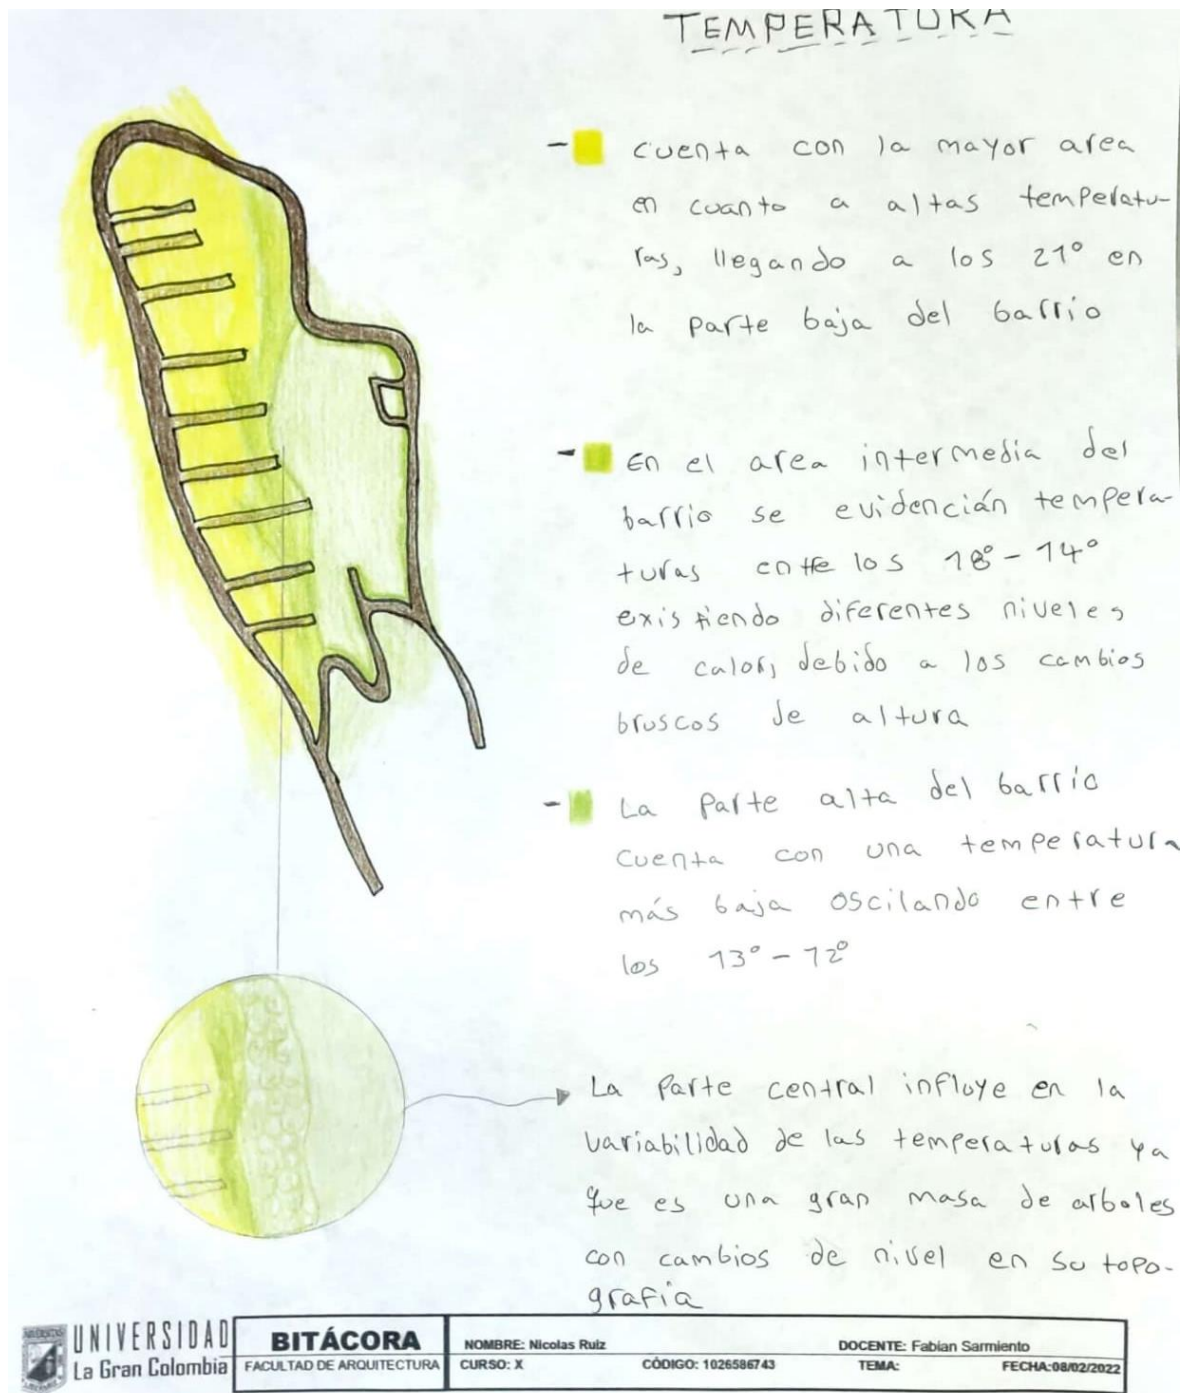 TEMPERATURA
- cuenta con la mayor area
en cuanto a altas temperatu-
ras, llegando a los 21° en
la parte baja del barrio
- En el area intermedia del
barrio se evidencián tempera-
turas entre los 18° - 14°
existiendo diferentes niveles
de calor, debido a los cambios
bruscos de altura
- La parte alta del barrio
cuenta con una temperatura
más baja oscilando entre
los 13° - 12°
La parte central influye en la
variabilidad de las temperaturas ya
que es una gran masa de arboles
con cambios de nivel en su topo-
grafía
UNIVERSIDAD
La Gran Colombia
BITÁCORA
FACULTAD DE ARQUITECTURA
NOMBRE: Nicolas Ruiz DOCENTE: Fabian Sarmiento
CURSO: X CÓDIGO: 1026586743 TEMA: FECHA:08/02/2022